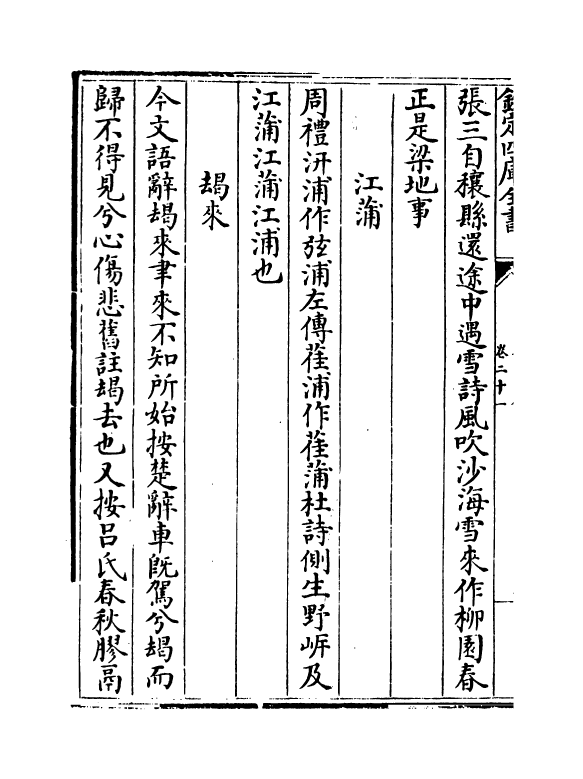 欽定四庫全書
卷二十一
張三自穰縣還途中遇雪詩風吹沙海雪來作柳園春
正是梁地事
江蒲
周禮汧浦作弦浦左傳萑浦作萑蒲杜詩側生野岍及
江蒲江蒲江浦也
朅來
今文語辭朅來聿來不知所始按楚辭車旣駕兮朅而
歸不得見兮心傷悲舊註朅去也又按呂氏春秋膠鬲